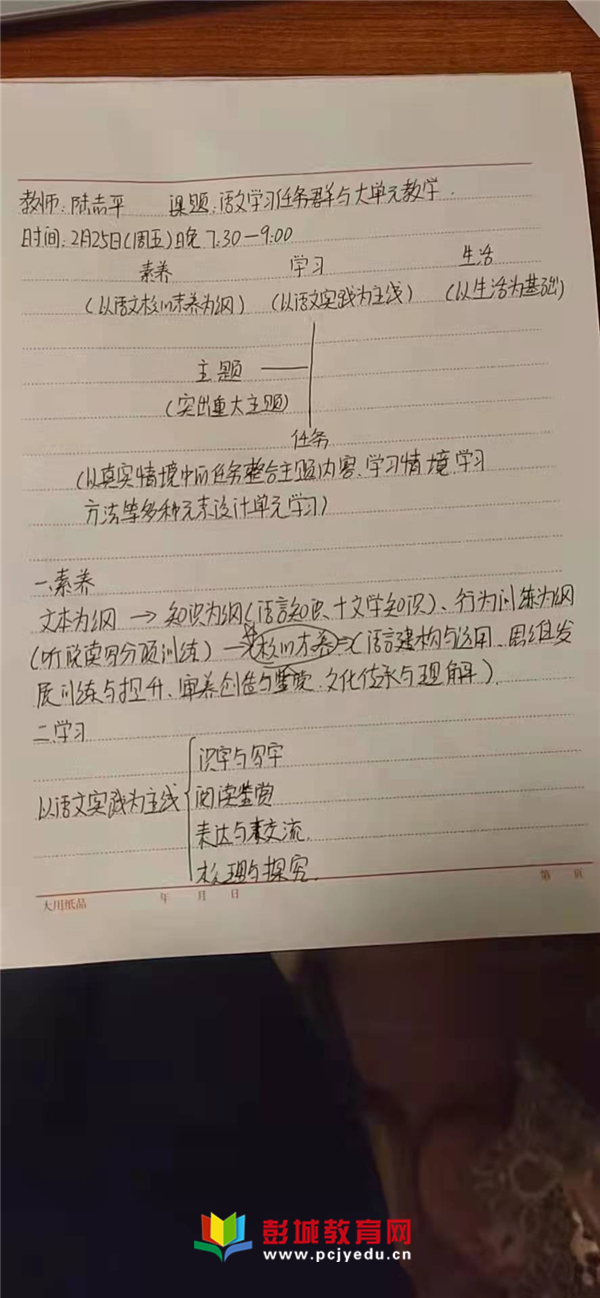 教师:陆志平 课题:语文学习任务群与大单元教学.
时间:2月25日(周五)晚7:30—9:00
素养 学习 生活
(以语文核心素养为纲) (以语文实践为主线) (以生活为基础)
主题
(突出重大主题)
任务
(以真实情境中的任务整合主题内容、学习情境、学习
方法等多种元素设计单元学习)
一、素养
文本为纲 → 知识为纲(语言知识、十文学知识)、行为训练为纲
(听说读写分项训练) → 核心素养 ⇒ (语言建构与运用、思维发
展训练与提升、审养创造与鉴赏、文化传承与理解).
二、学习
以语文实践为主线
识字与写字
阅读鉴赏
表达与交流.
梳理与探究.
大川纸品 年 月 日 第 页
彭城教育网
www.pcjyedu.cn